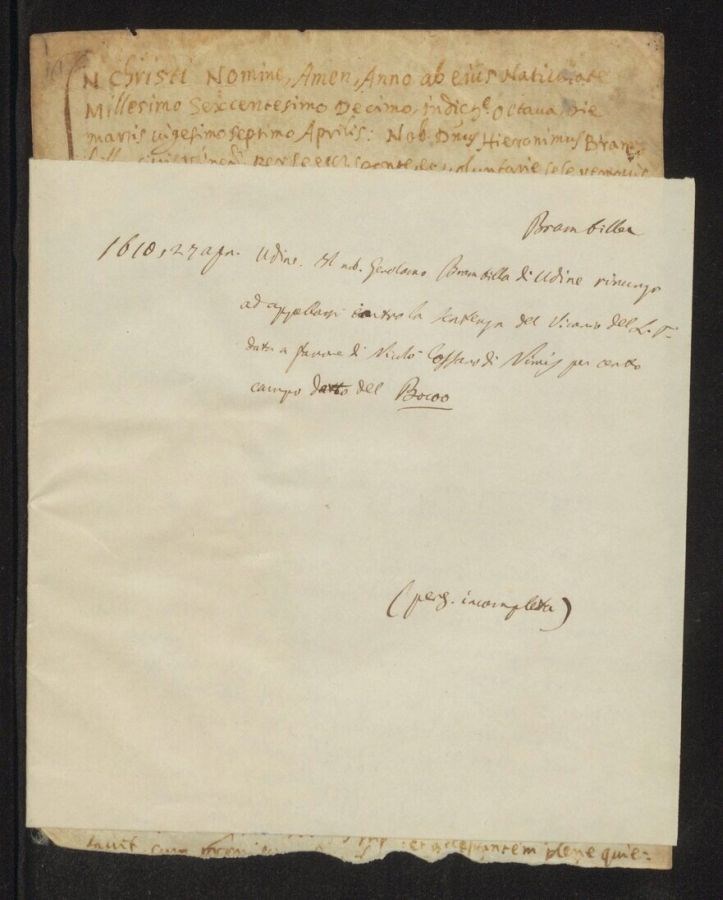 IN Christi Nomine, Amen, Anno ab eius Natiuitate
Millesimo Sexcentesimo Decimo, Indictne. Octaua, Die
martis uigesimo septimo Aprilis: Nob. Dnus Hieronimus Bram-
Brambilla
1610, 27 apr. Udine. Il nob. Gerolamo Brambilla di Udine rinunzia
ad appellarsi contro la sentenza del Vicario del L.T.
data a favore di Nicolò di Nimis per certo
campo detto del Bocoo
(perg. incompleta)
plene quie-